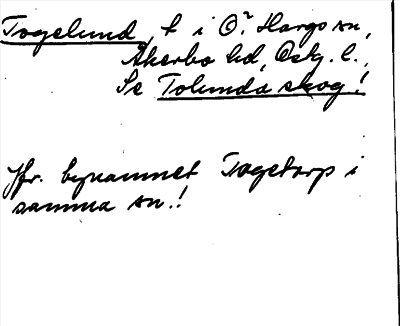 Togelund, t i Ö? Hargs sn,
Åkerbo hd, Östg. l.,
Se Tolunda skog!
Jfr. bynamnet Togetorp i
samma sn.!